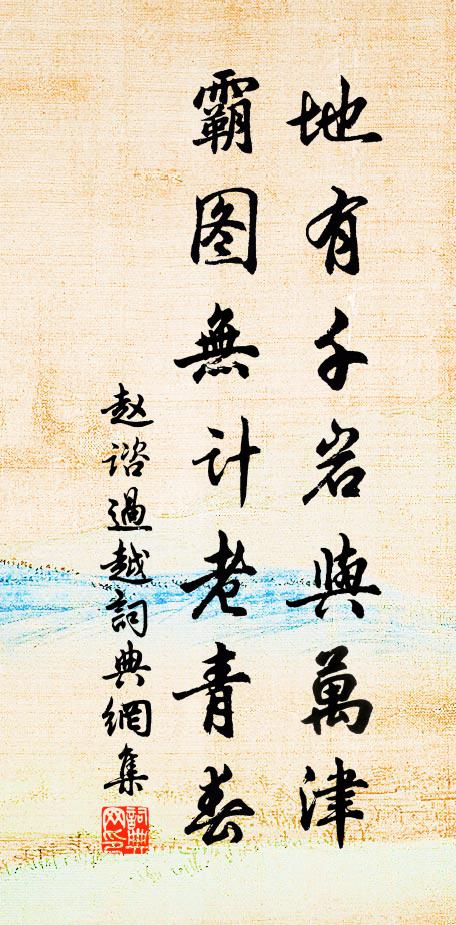 地有千岩與萬津
霸图無计老青春
赵谘過越詞典網集
詞典網印